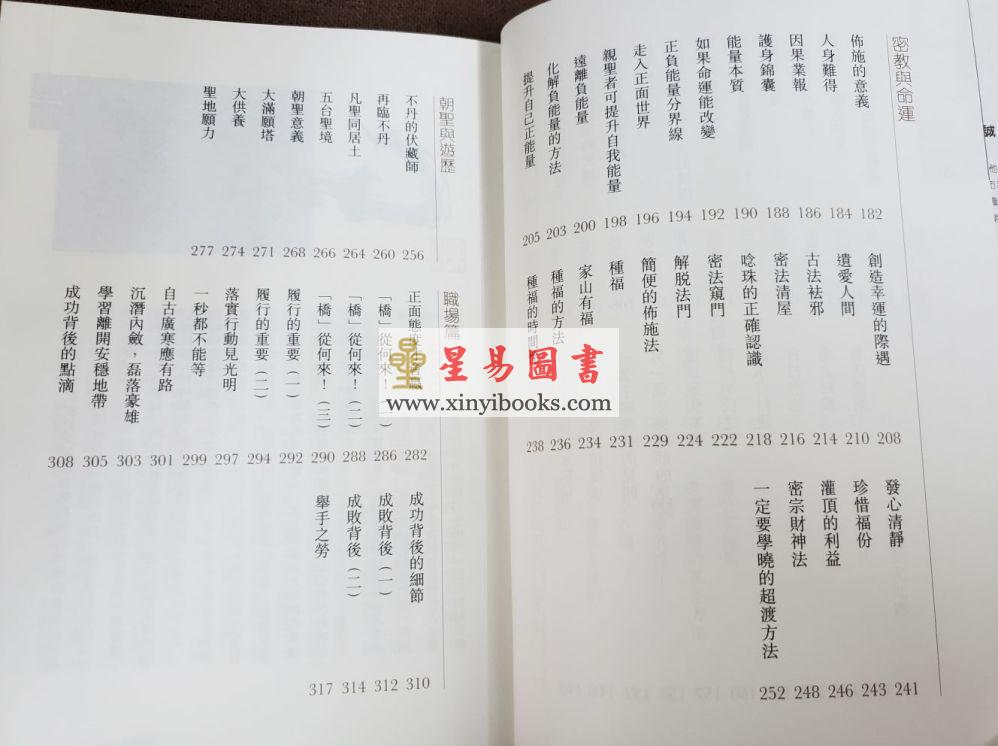 誠
密教與命運
佈施的意義 182
人身難得 184
因果業報 186
護身錦囊 188
能量本質 190
如果命運能改變 192
正負能量分界線 194
走入正面世界 196
親聖者可提升自我能量 198
遠離負能量 200
化解負能量的方法 203
提升自己正能量 205
創造幸運的際遇 208
遺愛人間 210
古法祛邪 214
密法清屋 216
唸珠的正確認識 218
密法窺門 222
解脫法門 224
簡便的佈施法 229
種福 231
家山有福 234
種福的方法 236
種福的時間 238
發心清靜 241
珍惜福份 243
灌頂的利益 246
密宗財神法 248
一定要學曉的超渡方法 252
朝聖與遊歷
不丹的伏藏師 256
再臨不丹 260
凡聖同居土 264
五台聖境 266
朝聖意義 268
大滿願塔 271
大供養 274
聖地願力 277
職場篇
正面態 282
「橋」從何來！（一） 286
「橋」從何來！（二） 288
「橋」從何來！（三） 290
履行的重要（一） 292
履行的重要（二） 294
落實行動見光明 297
一秒都不能等 299
自古廣寒應有路 301
沉潛內斂，磊落豪雄 303
學習離開安穩地帶 305
成功背後的點滴 308
成功背後的細節 310
成敗背後（一） 312
成敗背後（二） 314
舉手之勞 317
星易圖書
www.xinyibooks.com